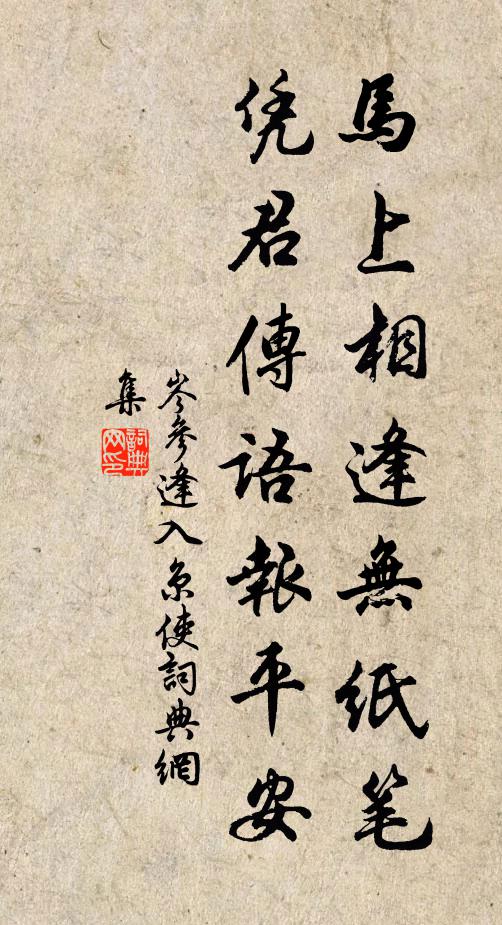 馬上相逢無紙笔
凭君傳語報平安
岑參逢入京使詞典網
集
詞典
网印